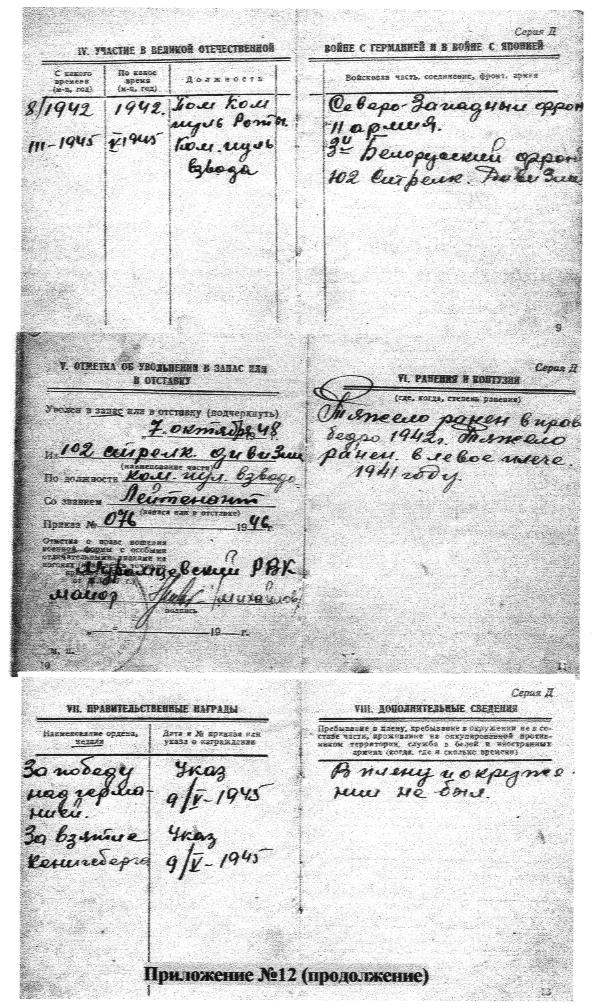 Серия Д
IV. УЧАСТИЕ В ВЕЛИКОЙ ОТЕЧЕСТВЕННОЙ ВОЙНЕ С ГЕРМАНИЕЙ И В ВОЙНЕ С ЯПОНИЕЙ
С какого времени (м-ц, год)
По какое время (м-ц, год)
Должность
Войсковая часть, соединение, фронт, армия
8/1942 1942. Пом Ком Северо-Западный фрон
пуль Роты. 11 армия.
III-1945 V 1945 Ком. пуль 3й Белорусский фрон
взвода 102 Стрелк. Дивизия
9
V. ОТМЕТКА ОБ УВОЛЬНЕНИИ В ЗАПАС ИЛИ
В ОТСТАВКУ
Уволен в запас или в отставку (подчеркнуть)
7. октября 48
Из 102 стрелк. дивизии
(наименование части)
По должности ком. пул. взвода
Со званием Лейтенант
(запаса или в отставке)
Приказ № 076 1946 г.
Отметка о праве ношения
военной формы с особыми
отличительными знаками на
погонах
РВК
майор /михайлов/
подпись
„ “ 19 г.
М. П.
10
Серия Д
VI. РАНЕНИЯ И КОНТУЗИИ
(где, когда, степень ранения)
Тяжело ранен в прав
бедро 1942г. Тяжело
ранен в левое плечо.
1941 году.
11
VII. ПРАВИТЕЛЬСТВЕННЫЕ НАГРАДЫ
Наименование ордена, медали
Дата и № приказа или указа о награждении
За победу Указ
над герма- 9/V-1945
нией.
За взятие Указ
Кенигсберга 9/V-1945
Серия Д
VIII. ДОПОЛНИТЕЛЬНЫЕ СВЕДЕНИЯ
Пребывание в плену, пребывание в окружении не в со-
ставе части, проживание на оккупированной против-
ником территории, служба в белой и иностранных
армиях (когда, где и сколько времени)
В плену и окруже-
нии не был.
Приложение №12 (продолжение)
13